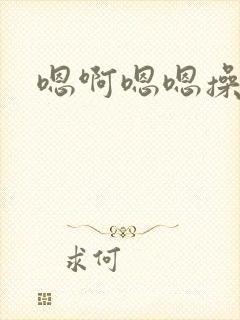 嗯啊嗯嗯操
求何